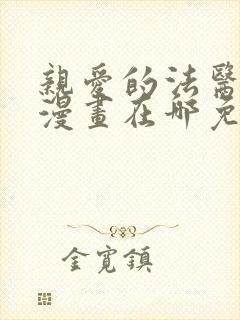 親愛的法醫
漫畫在哪免
金寬鎮